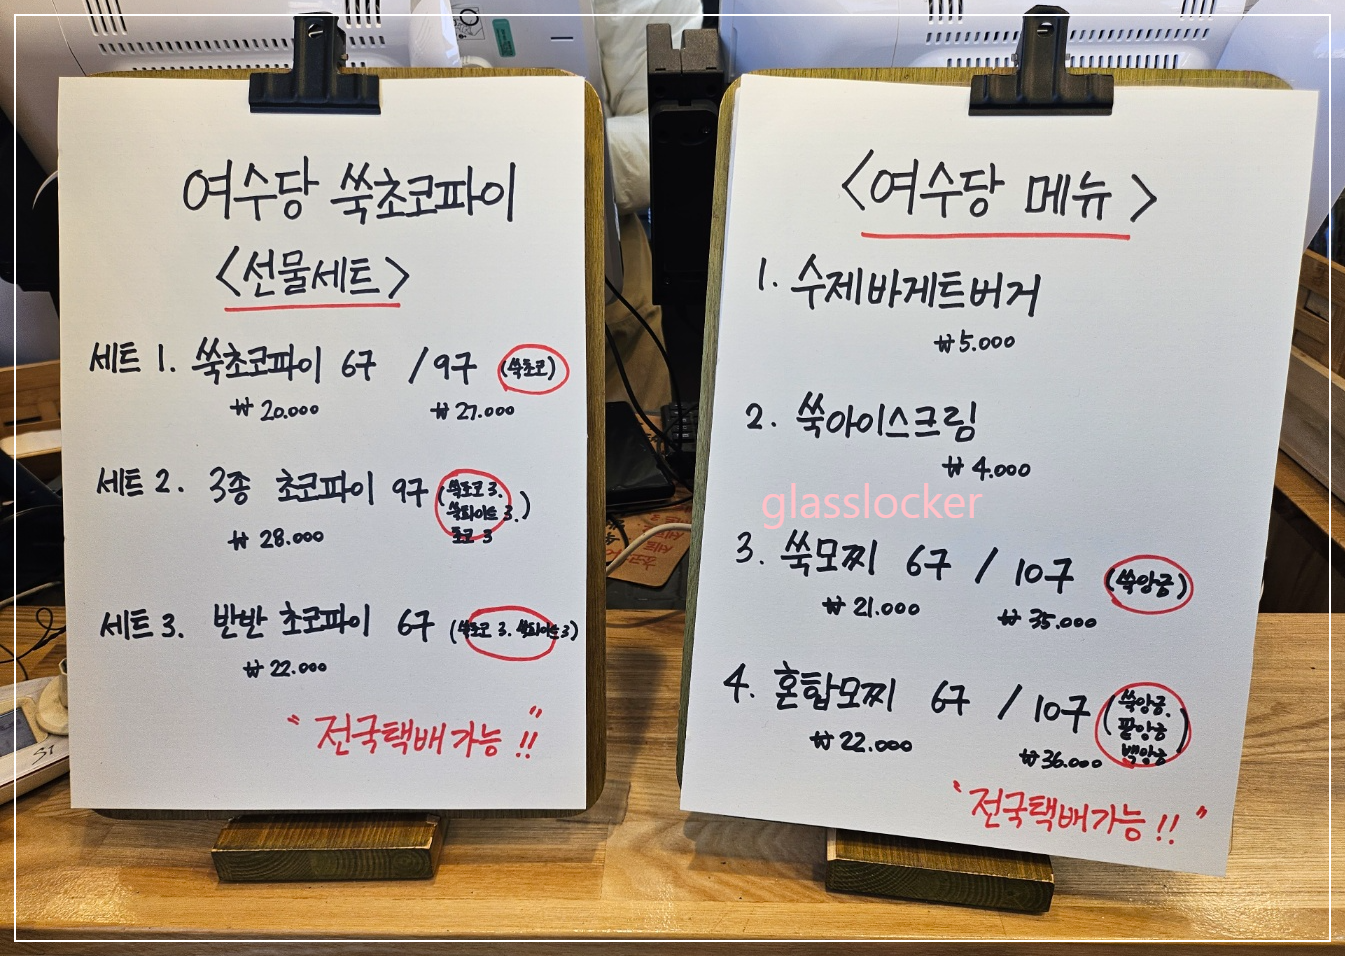 여수당 쑥초코파이
<선물세트>
세트 1. 쑥초코파이 6구 / 9구 (쑥초코)
₩ 20.000 ₩ 27.000
세트 2. 3종 초코파이 9구 (쑥초코 3.
쑥화이트 3.)
초코 3
₩ 28.000
세트 3. 반반 초코파이 6구 (쑥초코 3. 쑥화이트 3)
₩ 22.000
"전국택배가능!!"
<여수당 메뉴>
1. 수제바게트버거
₩ 5.000
2. 쑥아이스크림
₩ 4.000
glasslocker
3. 쑥모찌 6구 / 10구 (쑥앙금)
₩ 21.000 ₩ 35.000
4. 혼합모찌 6구 / 10구 (쑥앙금.
팥앙금
백앙금)
₩ 22.000 ₩ 36.000
"전국택배가능!!"